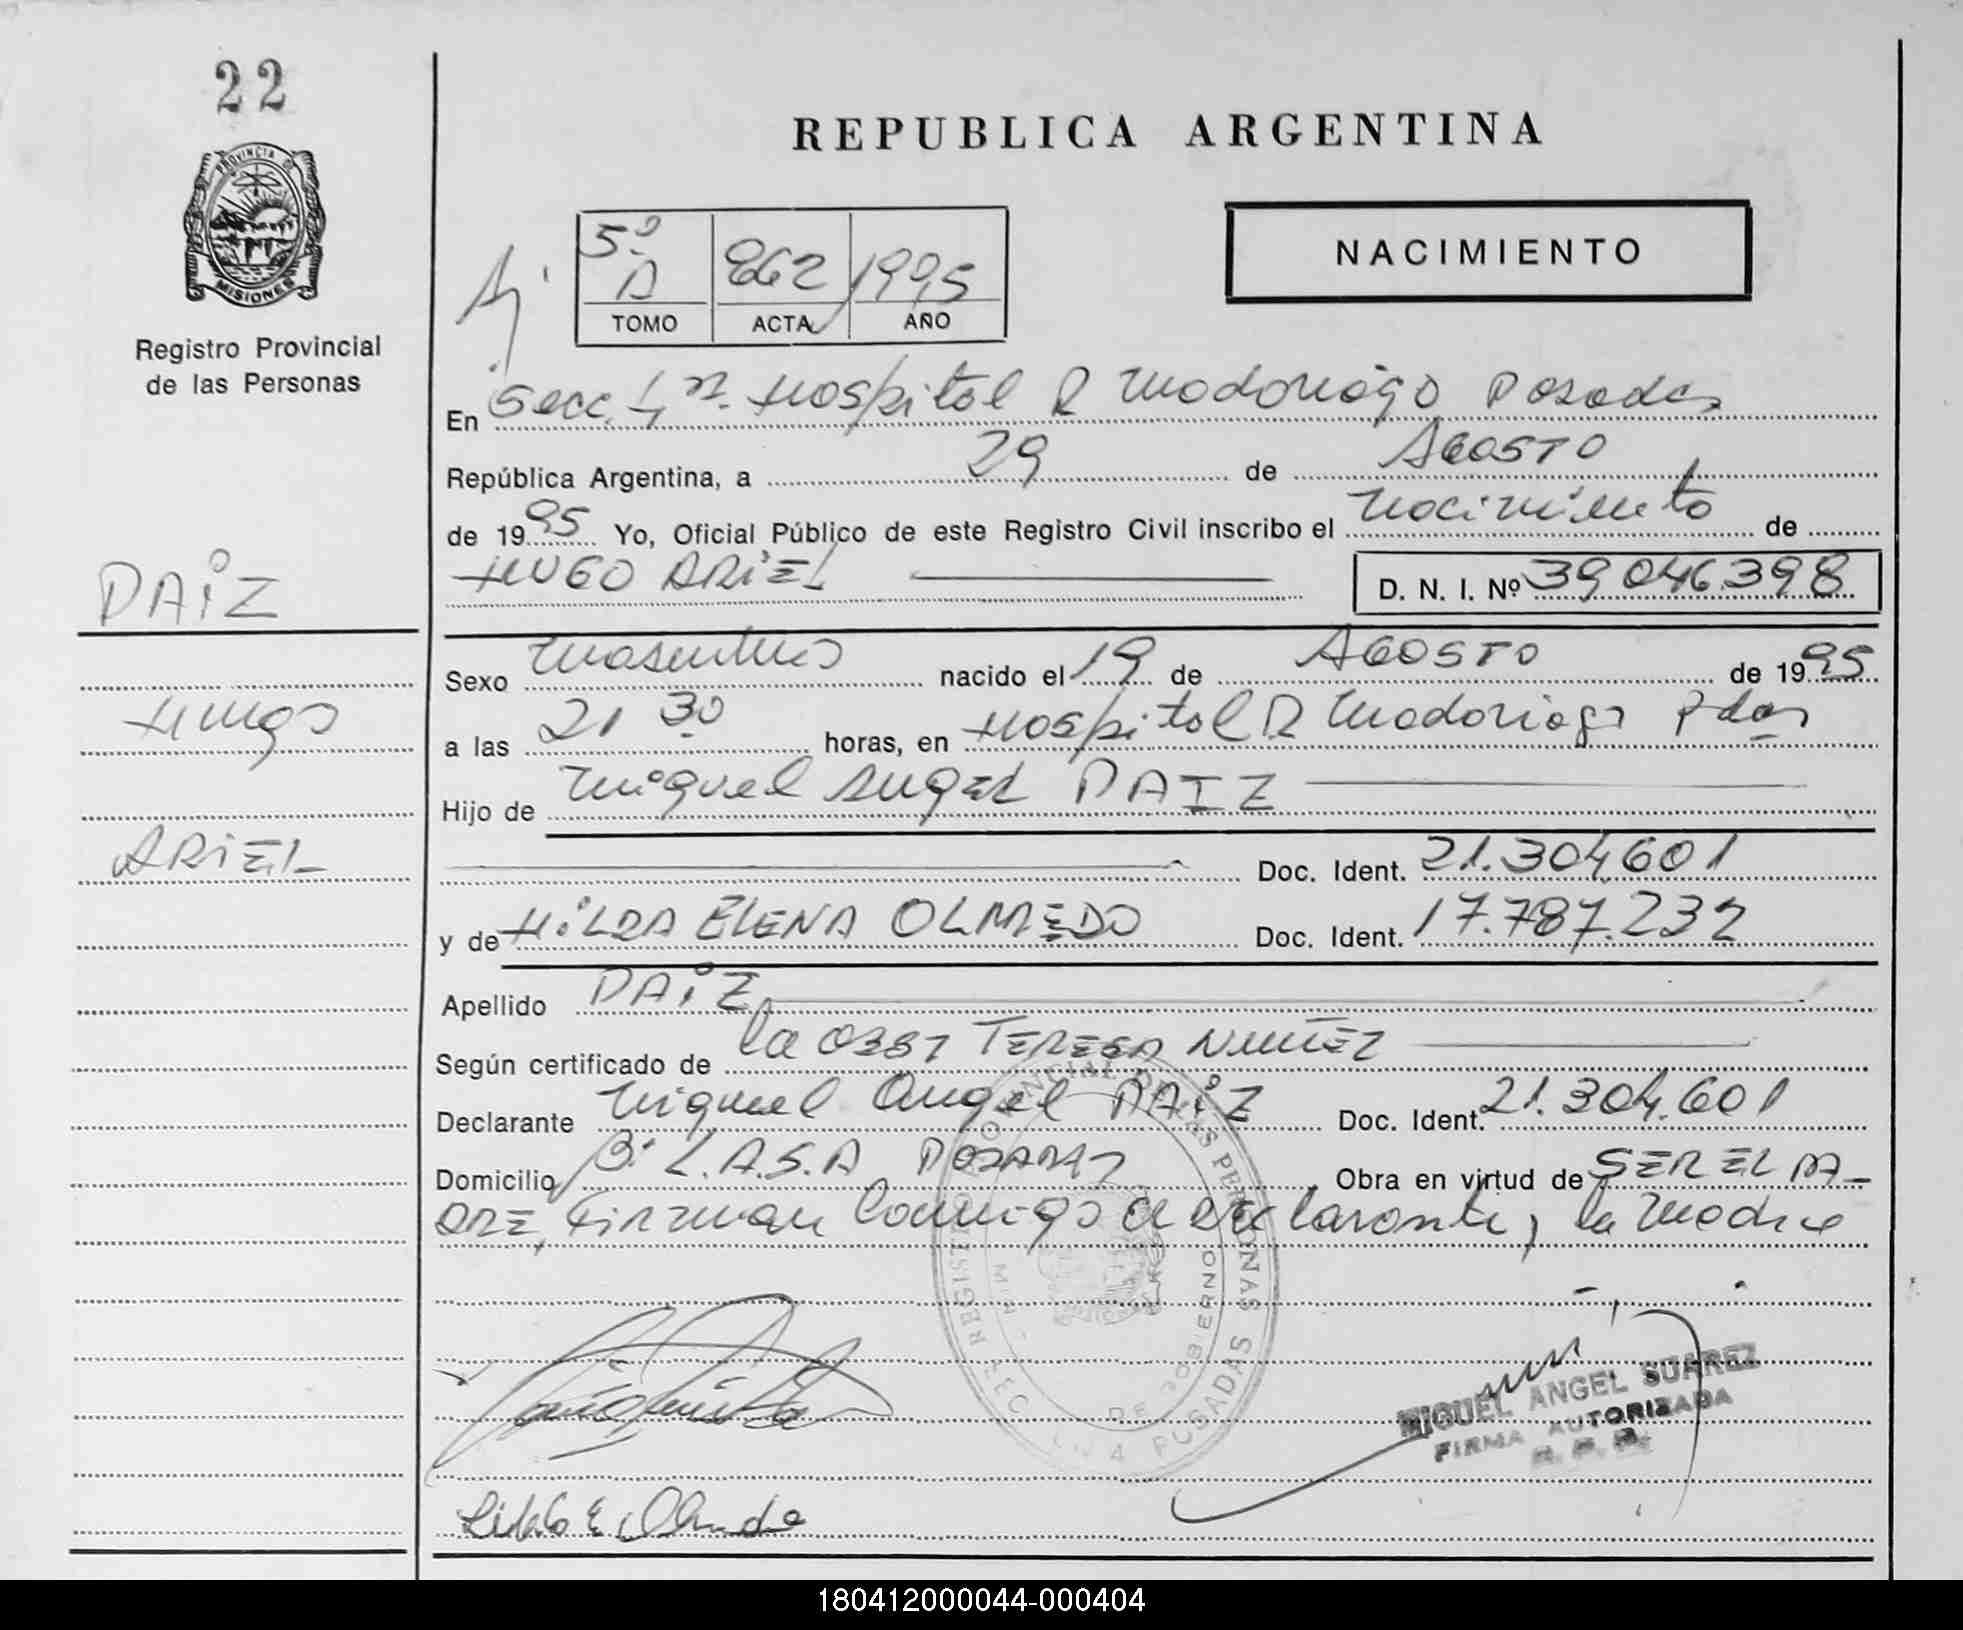 22
REPUBLICA ARGENTINA
PROVINCIA D
MISIONES
Registro Provincial
de las Personas
5º A 862 1995
TOMO ACTA AÑO
NACIMIENTO
En Secc. 4ta. Hospital R Madariaga Posadas
República Argentina, a 29 de AGOSTO
de 1995 Yo, Oficial Público de este Registro Civil inscribo el Nacimiento de
HUGO ARIEL D. N. I. Nº 39046.398
PAIZ
Hugo
ARIEL
Sexo Masculino nacido el 19 de AGOSTO de 1995
a las 21 30 horas, en Hospital R Madariaga Pdas
Hijo de Miguel Angel PAIZ
Doc. Ident. 21.304.601
y de HILDA ELENA OLMEDO Doc. Ident. 17.787.232
Apellido PAIZ
Según certificado de la OBST TERESA NUÑEZ
Declarante Miguel Angel PAIZ Doc. Ident. 21.304.601
Domicilio Bº L.A.S.A POSADAS Obra en virtud de SER EL PA-
DRE, Firman conmigo el declarante, la Madre
REGISTRO PROVINCIAL DE LAS PERSONAS
SECC 4 POSADAS
DE GOBIERNO
MIGUEL ANGEL SUAREZ
FIRMA AUTORIZADA
R. P. P.
180412000044-000404